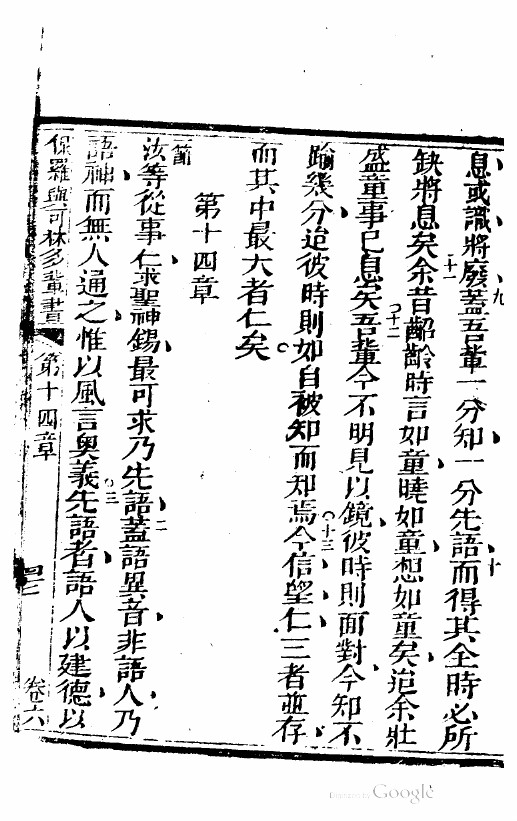 息或識將廢蓋吾輩一分知一分先語而得其全時必所
九
十
缺將息矣余昔齠齡時言如童曉如童想如童矣迨余壯
十一
盛童事已息矣吾輩今不明見以鏡彼時則面對今知不
十二
踰幾分迨彼時則如自被知而知焉今信望仁三者並存
十三
而其中最大者仁矣
第十四章
節
汝等從事仁求聖神錫最可求乃先語蓋語異音非語人乃
二
語神而無人通之惟以風言奧義先語者語人以建德以
三
保羅與可林多輩書 第十四章 卷六
Digitized by Google